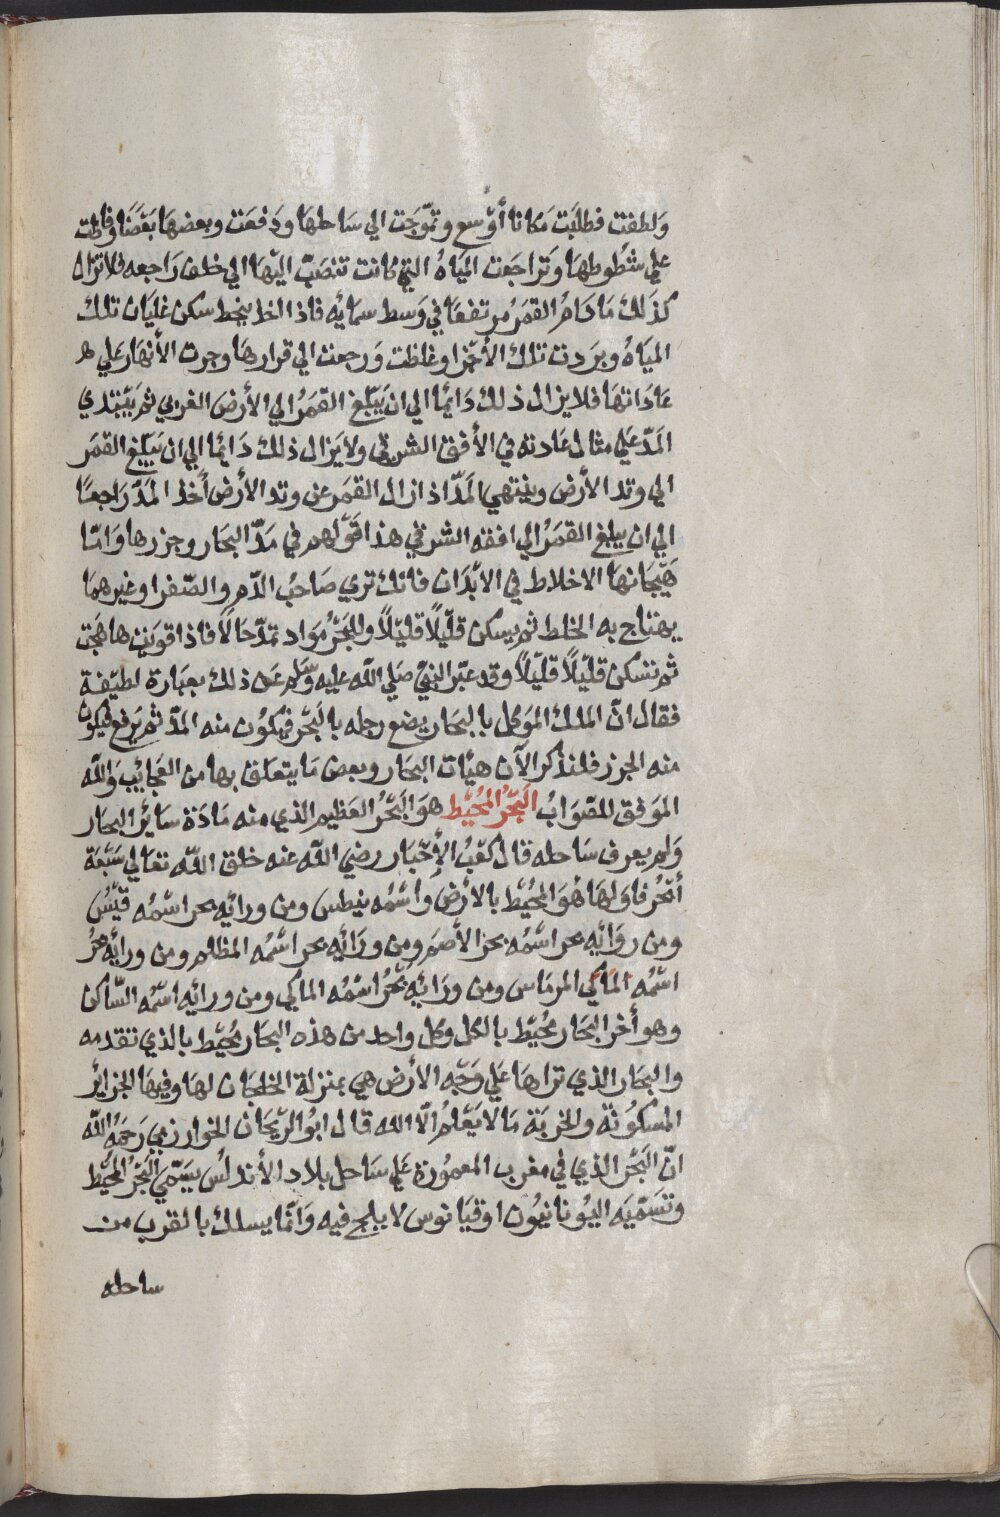 وَلطفت فطلبَت مَكانا أوْسع وتمّوَجَت الي سَاحلها ودَفعَت وبعضهَا بَعْضًا وفاظت
علي شطُوطهَا وتَراجَعت الميَاهُ التي كانت تنصَبّ اليْهَا الي خلف رَاجعه فلا تزال
كذلك مَا دَامُ القمَرُ مرتفعًا في وَسط سمايُه فاذا اخط ينحط سكن غليَان تلك
الميَاهُ وبرَدت تلك الأبخرَا وغلظت وَرجعت الي قرارهَا وجرت الأنهَار عَلي
عَادَاتهَا فلا يزال ذلك دَايُما الي ان يَبْلغ القمَرُ الي الأرض الغربي ثم يَبْتدي
المَدّ عَلي مثال عَادته في الأفق الشرقي ولا يَزال ذلك دَايُما الي ان يَبْلغ القمَر
الي وتد الأرض وينتهي المَدّ اذ ازال القمَر عَن وتد الأرض أخذ المَدّ رَاجعًا
الي ان يبلغ القمَرُ الي افقه الشرقي هذا قوَلهم في مَدّ البحَار وجزرها وَامّا
هَيَجَانهَا الاخلاط في الابْدَان فانك تري صَاحبُ الدّم والصّفرا وغيرهمَا
يهتاج به الخلط ثم يسكن قليْلاً قليْلاً وللبَحْر مَواد تمدّ حَالًا فاذا قويَت هاجَت
ثم تسكن قليْلاً قليْلاً وقد عبّر النبيْ صَلي اللّه عليه وسَلم عَن ذلك بعبَارة لطيْفة
فقال انّ الملك الموَكل بالبحَار يضع رجله بالبَحْر فيكوُن منه المدّ ثم يَرفع فيكوُن
منه الجزر فلنذكر الآن هيْات البحَار وبعض مَا يتعلق بها من العجَايْب وَاللّه
الموَفق للصّوَابُ البَحْرُ المحُيْط هوَ البَحْرُ العَظيم الذي منه مَادَة سَايُر البحَار
وَلم يعرف سَاحله قال كعْبُ الأحْبَار رضي اللّه عنه خلق اللّه تعَالي سَبْعَة
أبْحُر فاوَلهَا هُوَ المحُيْط بالأرْضِ واسْمُه نيطس ومن ورَايُه بحر اسْمُه قيْسُ
ومن روَايُه بحر اسْمُه بحر الأصَم ومن ورَايُه بحر اسْمُه المظلم ومن ورايُه بحرُ
اسْمُه المَاكي المرمَاس ومن ورَايُه بَحْرُ اسْمُه الماكي ومن ورايُه اسْمُه السَّاكن
وهو أخر البحَار محُيْط بالكل وكل واحد من هذه البحَار محُيْط بالذي تقدمه
والبحَار الذي تراهَا عَلي وَجْه الأرض هي بمنزلة الخلجَان لهَا وفيهَا الجزائر
المسْكوُنة والخربَة مَا لا يَعْلمُ الّا اللّه قال ابوُ الرّيْحَان الخوارزمي رَحمَهُ اللّه
انّ البَحْر الذي في مغرب المعموُرة عَلي سَاحل بلاد الأندلسُ يسَمّي البَحْر المحيْط
وتسَمّيَه اليوُنانيوُن اوقيَانوس لا يلج فيه وَانّما يسلك بالقرب من
ساحله